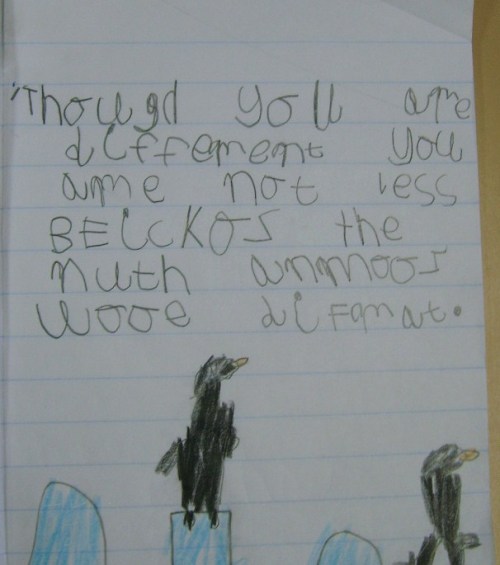 Thougd you are
different you
are not less
BEICKOS the
nuth anmoos
wooe difanat.